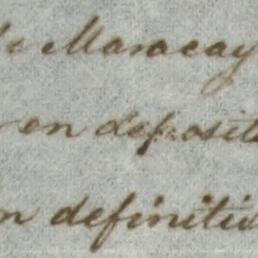 de Maracay
en deposit
n definitiv